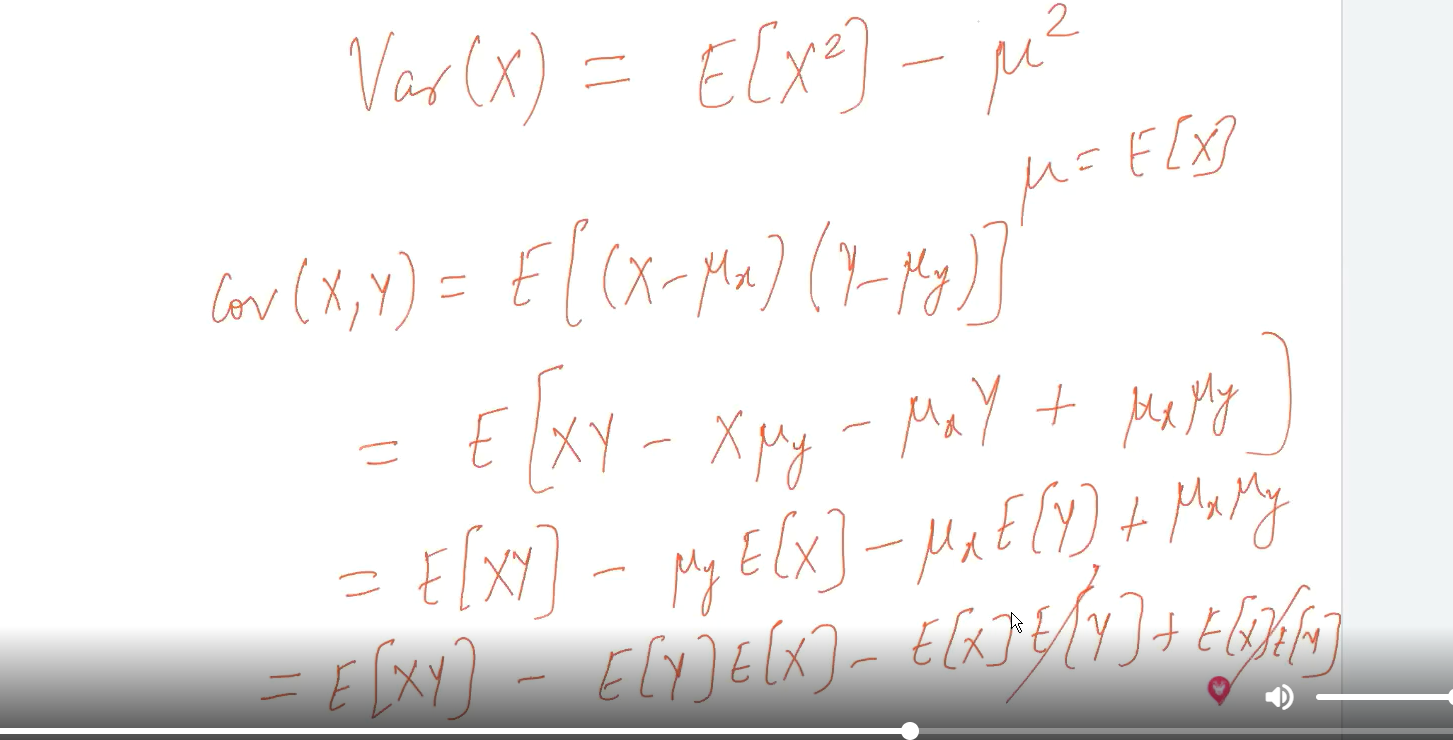 Var(X) = E[X²] - μ²
μ = E[X]
Cov(X,Y) = E[(X-μx)(Y-μy)]
= E[XY - Xμy - μxY + μxμy]
= E[XY] - μyE[X] - μxE[Y] + μxμy
= E[XY] - E[Y]E[X] - E[X]E[Y] + E[X]E[Y]